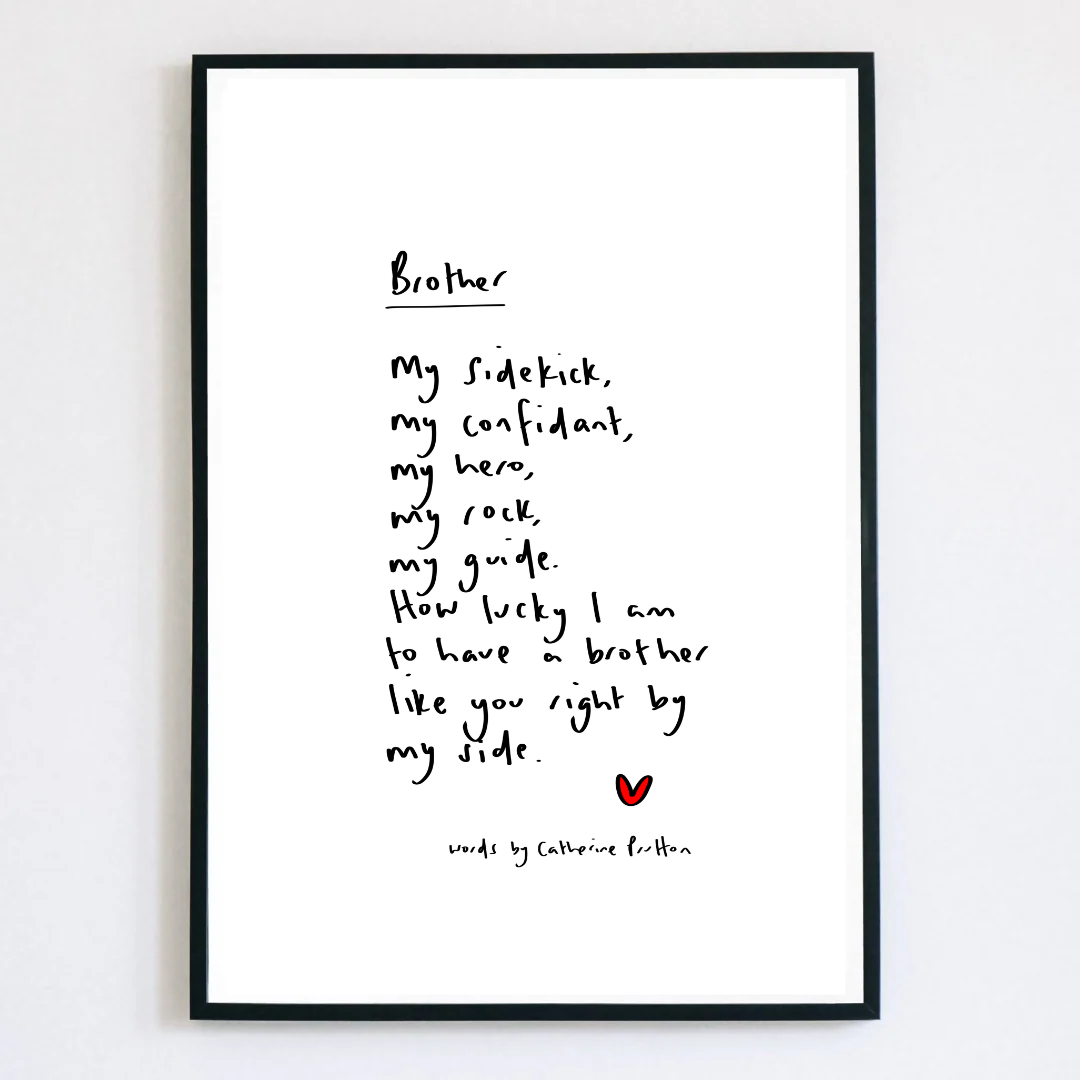 Brother
My sidekick,
my confidant,
my hero,
my rock,
my guide.
How lucky I am
to have a brother
like you right by
my side.
words by Catherine Prutton